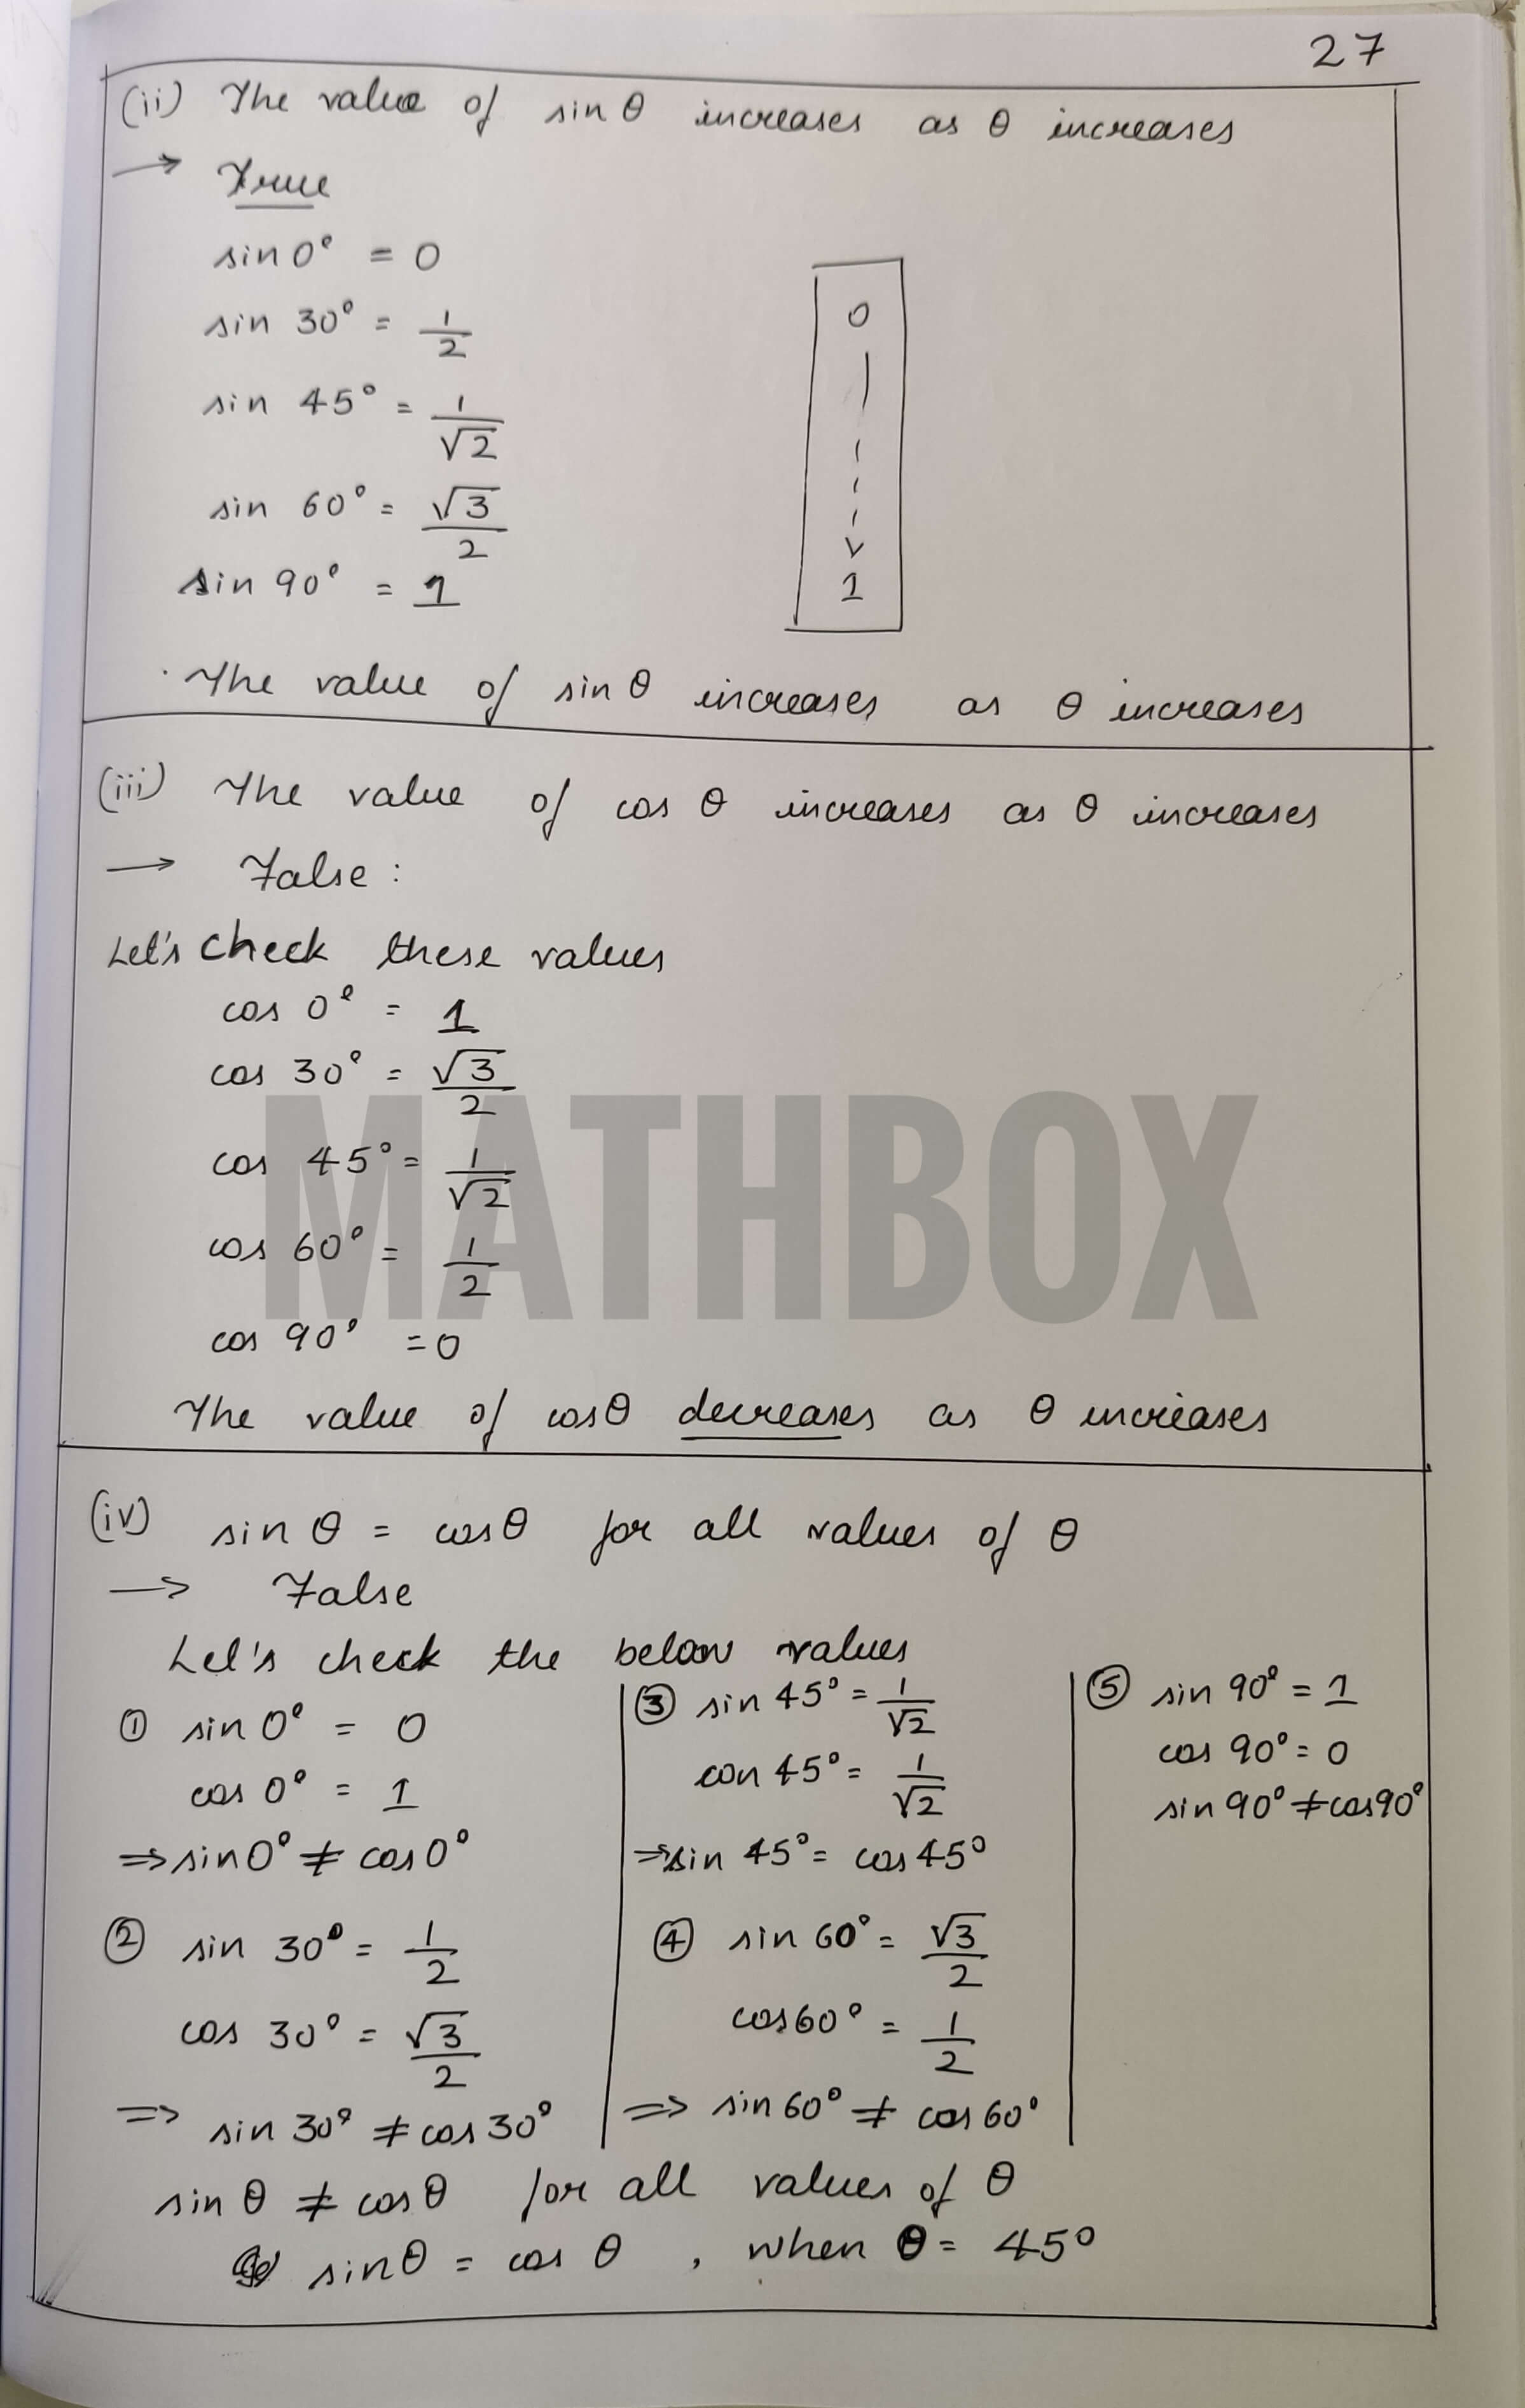 27
(ii) The value of sin θ increases as θ increases
→ True
sin 0° = 0
sin 30° = 1/2
sin 45° = 1/√2
sin 60° = √3/2
sin 90° = 1
0
1
The value of sin θ increases as θ increases
(iii) The value of cos θ increases as θ increases
→ False :
Let's check these values
cos 0° = 1
cos 30° = √3/2
cos 45° = 1/√2
cos 60° = 1/2
cos 90° = 0
MATHBOX
The value of cos θ decreases as θ increases
(iv) sin θ = cos θ for all values of θ
→ False
Let's check the below values
① sin 0° = 0
cos 0° = 1
⇒ sin 0° ≠ cos 0°
② sin 30° = 1/2
cos 30° = √3/2
⇒ sin 30° ≠ cos 30°
③ sin 45° = 1/√2
con 45° = 1/√2
⇒ sin 45° = cos 45°
④ sin 60° = √3/2
cos 60° = 1/2
⇒ sin 60° ≠ cos 60°
⑤ sin 90° = 1
cos 90° = 0
sin 90° ≠ cos 90°
sin θ ≠ cos θ for all values of θ
sin θ = cos θ , when θ = 45°